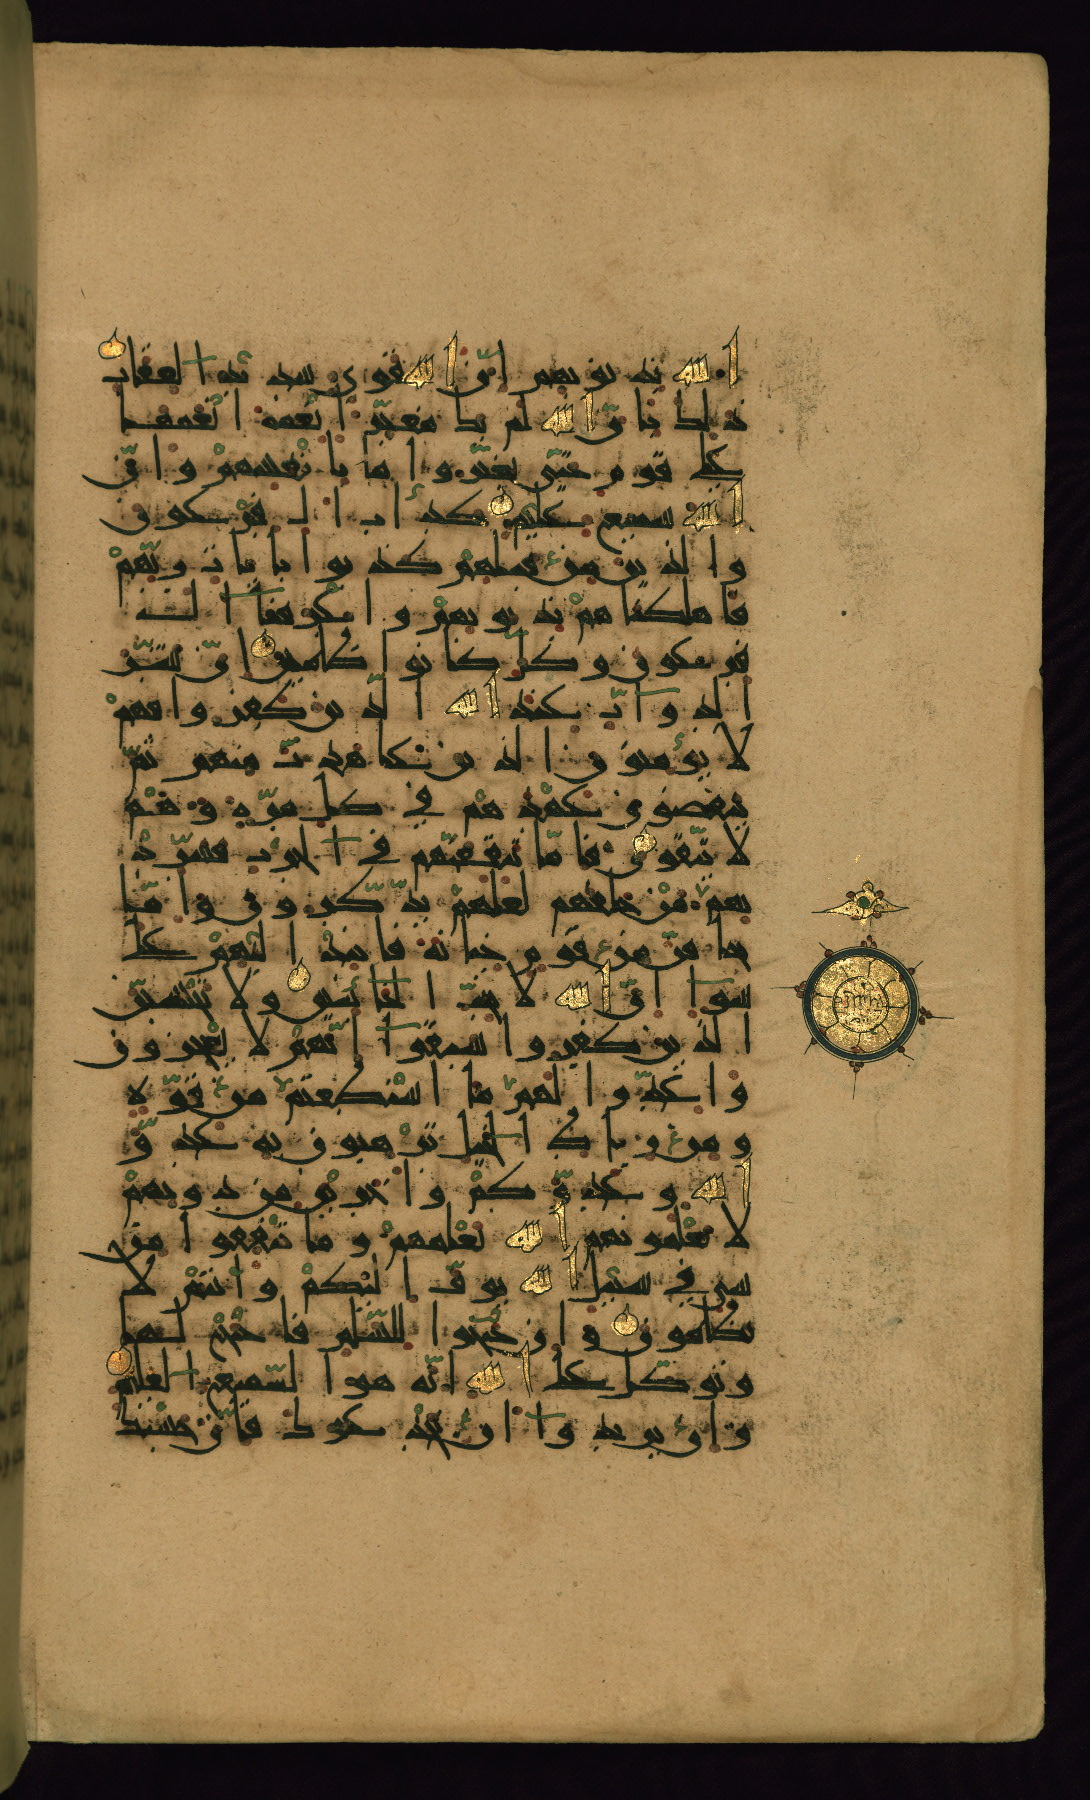 الله بذنوبهم ان الله قوي شديد العقاب
ذلك بان الله لم يك مغيرا نعمة انعمها
على قوم حتى يغيروا ما بانفسهم وان
الله سميع عليم كداب ال فرعون
والذين من قبلهم كذبوا بايات ربهم
فاهلكناهم بذنوبهم واغرقنا ال
فرعون وكل كانوا ظالمين ان شر
الدواب عند الله الذين كفروا فهم
لا يؤمنون الذين عاهدت منهم ثم
ينقضون عهدهم في كل مرة وهم
لا يتقون فاما تثقفنهم في الحرب فشرد
بهم من خلفهم لعلهم يذكرون واما
تخافن من قوم خيانة فانبذ اليهم على
سوا ان الله لا يحب الخائنين ولا يحسبن
الذين كفروا سبقوا انهم لا يعجزون
واعدوا لهم ما استطعتم من قوة
ومن رباط الخيل ترهبون به عدو
الله وعدوكم واخرين من دونهم
لا تعلمونهم الله يعلمهم وما تنفقوا من
شي في سبيل الله يوف اليكم وانتم لا
تظلمون وان جنحوا للسلم فاجنح لها
وتوكل على الله انه هو السميع العليم
وان يريدوا ان يخدعوك فان حسبك